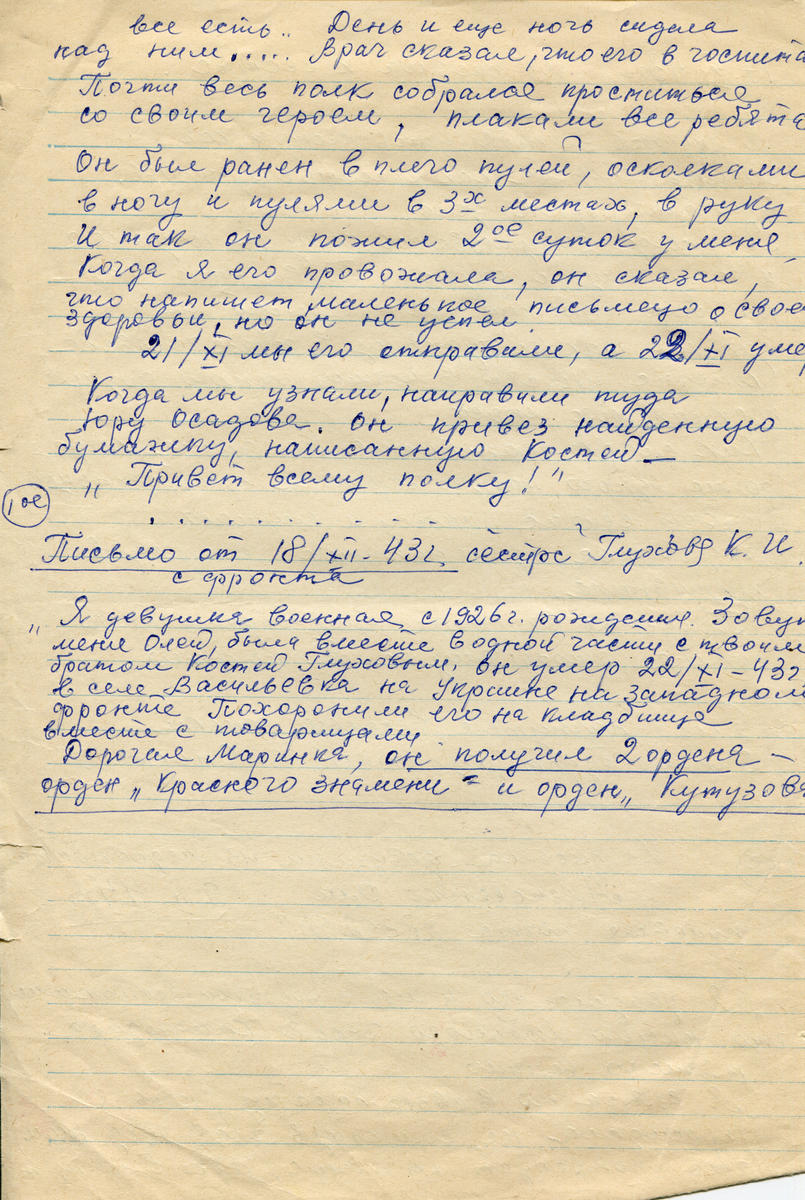 все есть.. День и еще ночь сидела
над ним..... Врач сказал, что его в госпита
Почти весь полк собрался проститься
со своим героем, плакали все ребята
Он был ранен в плечо пулей, осколками
в ногу и пулями в 3х местах, в руку
И так он пожил 2ое суток у меня,
Когда я его провожала, он сказал,
что напишет маленькое письмецо о свое
здоровьи, но он не успел.
21/XI мы его отправили, а 22/XI умер
Когда мы узнали, направили туда
Юру Осадова. Он привез найденную
бумажку, написанную Костей —
„Привет всему полку!"
1ое
Письмо от 18/XII-43г. сестре Глухова К. И.
с фронта
„Я девушка военная, с 1926г. рождения. Зовут
меня Олей, была вместе в одной части с твоим
братом Костей Глуховым. Он умер 22/XI-43г
в селе Васильевка на Украине на западном
фронте Похоронили его на кладбище
вместе с товарищами
Дорогая Маринка, он получил 2 ордена —
орден „Красного знамени" и орден „Кутузова